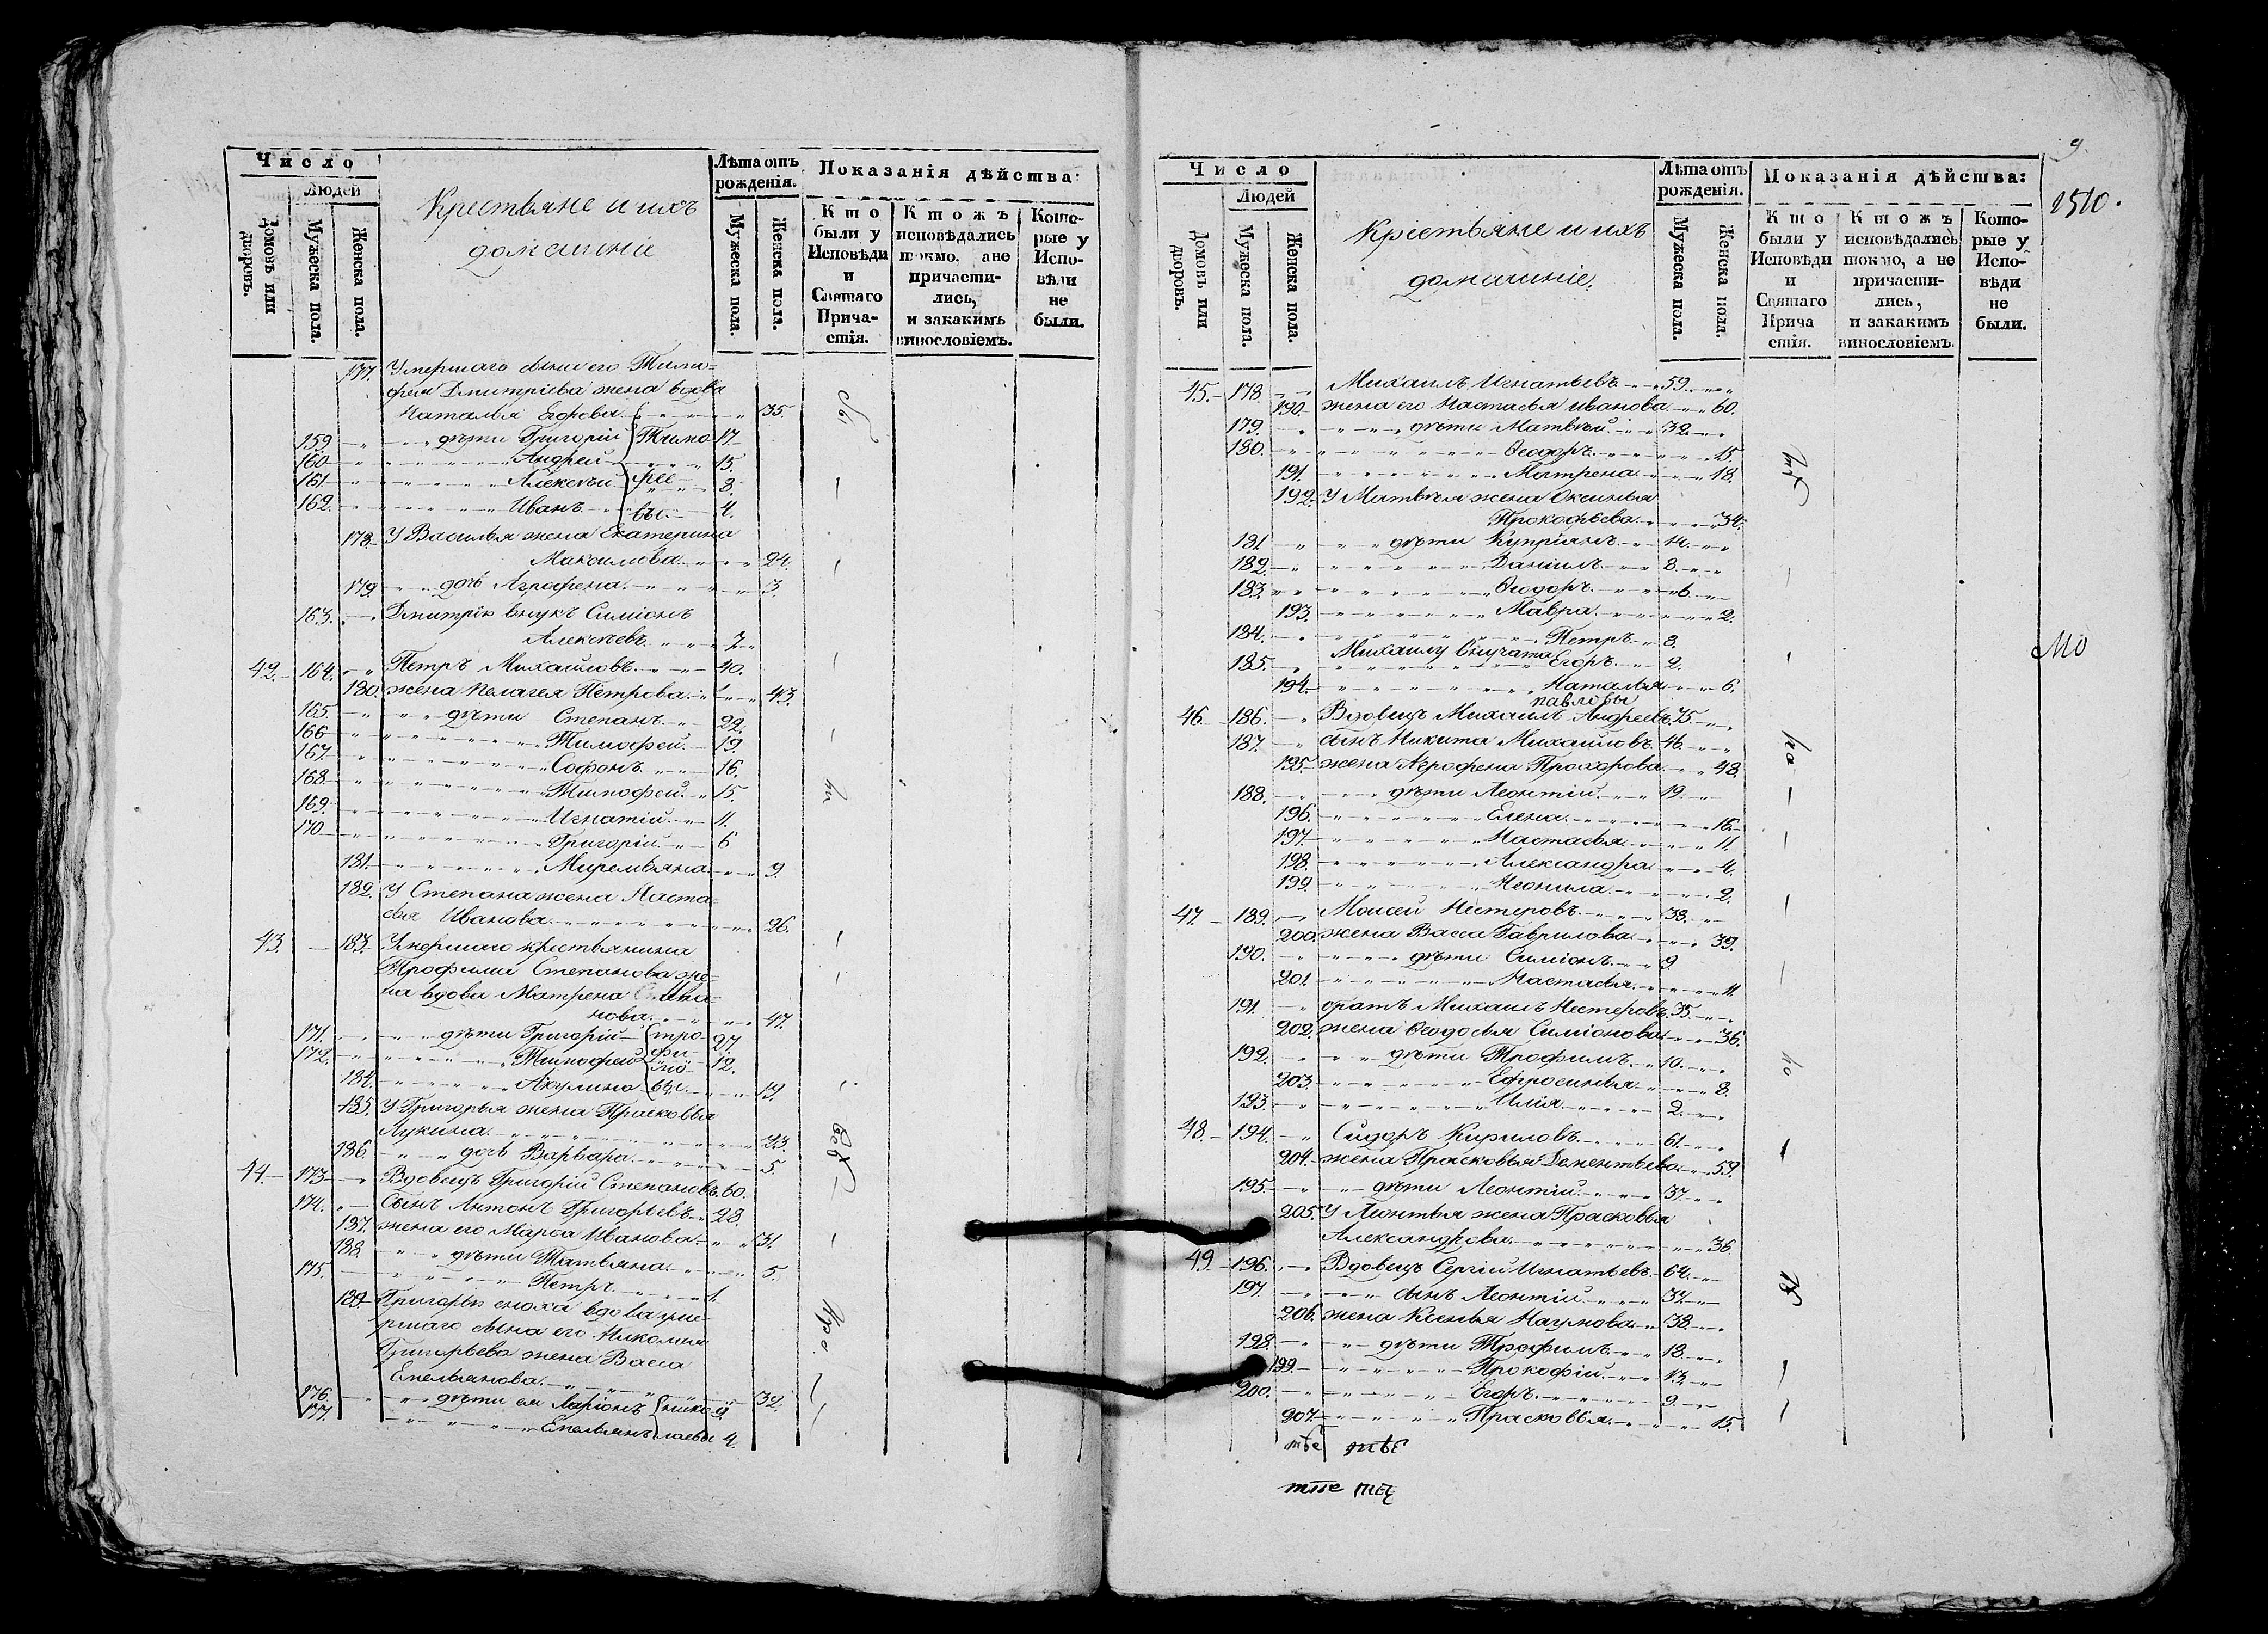 Число
Людей
Домовъ или дворовъ.
Мужеска пола.
Женска пола.
Крестьяне и ихъ
домашніе
Лѣта отъ рожденія.
Мужеска пола.
Женска пола.
Показанія дѣйства:
Кто были у Исповѣди и Святаго Причастія.
Ктожъ исповѣдались токмо, а не причастились, и закакимъ винословіемъ.
Которые у Исповѣди не были.
177. Умершаго сына его Тимо-
фея Дмитріева жена вдова
Наталья Егорова 35.
159 дѣти Григорій Тимо 17
160 Андрей 15.
161 Алексѣй фее 8.
162. Иванъ вы 4.
178 У Василья жена Екатерина
Максимова 24.
179. дочь Агрофена 3.
163. Дмитрію внукъ Симіонъ
Алексѣевъ 7
42. 164. Петръ Михайловъ 40.
180. жена Пелагея Петрова 43.
165. дѣти Степанъ 22.
166 Тимофей 19.
167 Софонъ 16.
168 Тимофей 15.
169. Игнатій 11.
170 Григорій 6
181. Миремьяна 9.
182. У Степана жена Наста-
сья Иванова 26.
43. 183. Умершаго крестьянина
Трофима Степанова же-
на вдова Матрена
нова 47.
171. дѣти Григорій тро- 27
172. Тимофей фи- 12.
мо-
184. Акулина вы 19.
185. У Григорья жена Прасковья
Лукина 23.
186. дочь Варвара 5.
44. 173 Вдовецъ Григорій Степановъ 60.
174. Сынъ Антонъ Григорьевъ 28.
187. жена его Марѳа Иванова 31.
188. дѣти Татьяна 5.
175. Петръ 1.
189. Григорью сноха вдова уме-
ршаго сына его Николая
Григорьева жена Васса
Емельянова 32.
176. дѣти ея Ларіонъ нико 9.
177. Емельянъ лаевы 4.
9.
1510.
Число
Людей
Домовъ или дворовъ.
Мужеска пола.
Женска пола.
Крестьяне и ихъ
домашніе.
Лѣта отъ рожденія.
Мужеска пола.
Женска пола.
Показанія дѣйства:
Кто были у Исповѣди и Святаго Причастія.
Ктожъ исповѣдались токмо, а не причастились, и закакимъ винословіемъ.
Которые у Исповѣди не были.
45. 178 Михаилъ Игнатьевъ 59.
190. жена его Настасья Иванова 60.
179. дѣти Матвѣй 32
180. Ѳеодоръ 15.
191. Матрена 18.
192. У Матвѣя жена Оксинья
Прокофьева 34.
181. дѣти Купріянъ 14.
182. Даніилъ 8.
183. Ѳеодоръ 6.
193. Мавра 2.
184. Петръ 8.
Михаилу внучата
185. Егоръ 2.
194. Наталья 6.
павловы
46. 186. Вдовецъ Михаилъ Андреевъ 75.
187. сынъ Никита Михайловъ 46.
195. жена Агрофена Прохорова 48.
188. дѣти Леонтій 19.
196. Елена 16.
197. Настасья 11.
198. Александра 4.
199. Неонила 2.
47. 189. Моисей Нестеровъ 38.
200. жена Васса Гаврилова 39.
190. дѣти Симіонъ 9.
201. Настасья 11.
191. братъ Михаилъ Нестеровъ 35.
202. жена Ѳеодосья Симіонова 36.
192. дѣти Трофимъ 10.
203. Ефросинья 8.
193. Илія 2.
48. 194. Сидоръ Кириловъ 61.
204. жена Прасковья Дементьева 59.
195. дѣти Леонтій 37.
205. У Леонтья жена Прасковья
Александрова 36.
49. 196. Вдовецъ Сергій Игнатьевъ 64.
197. сынъ Леонтій 34.
206. жена Ксенья Наумова 38.
198. дѣти Трофимъ 18.
199. Прокофій 13.
200. Егоръ 9.
207. Прасковья 15.